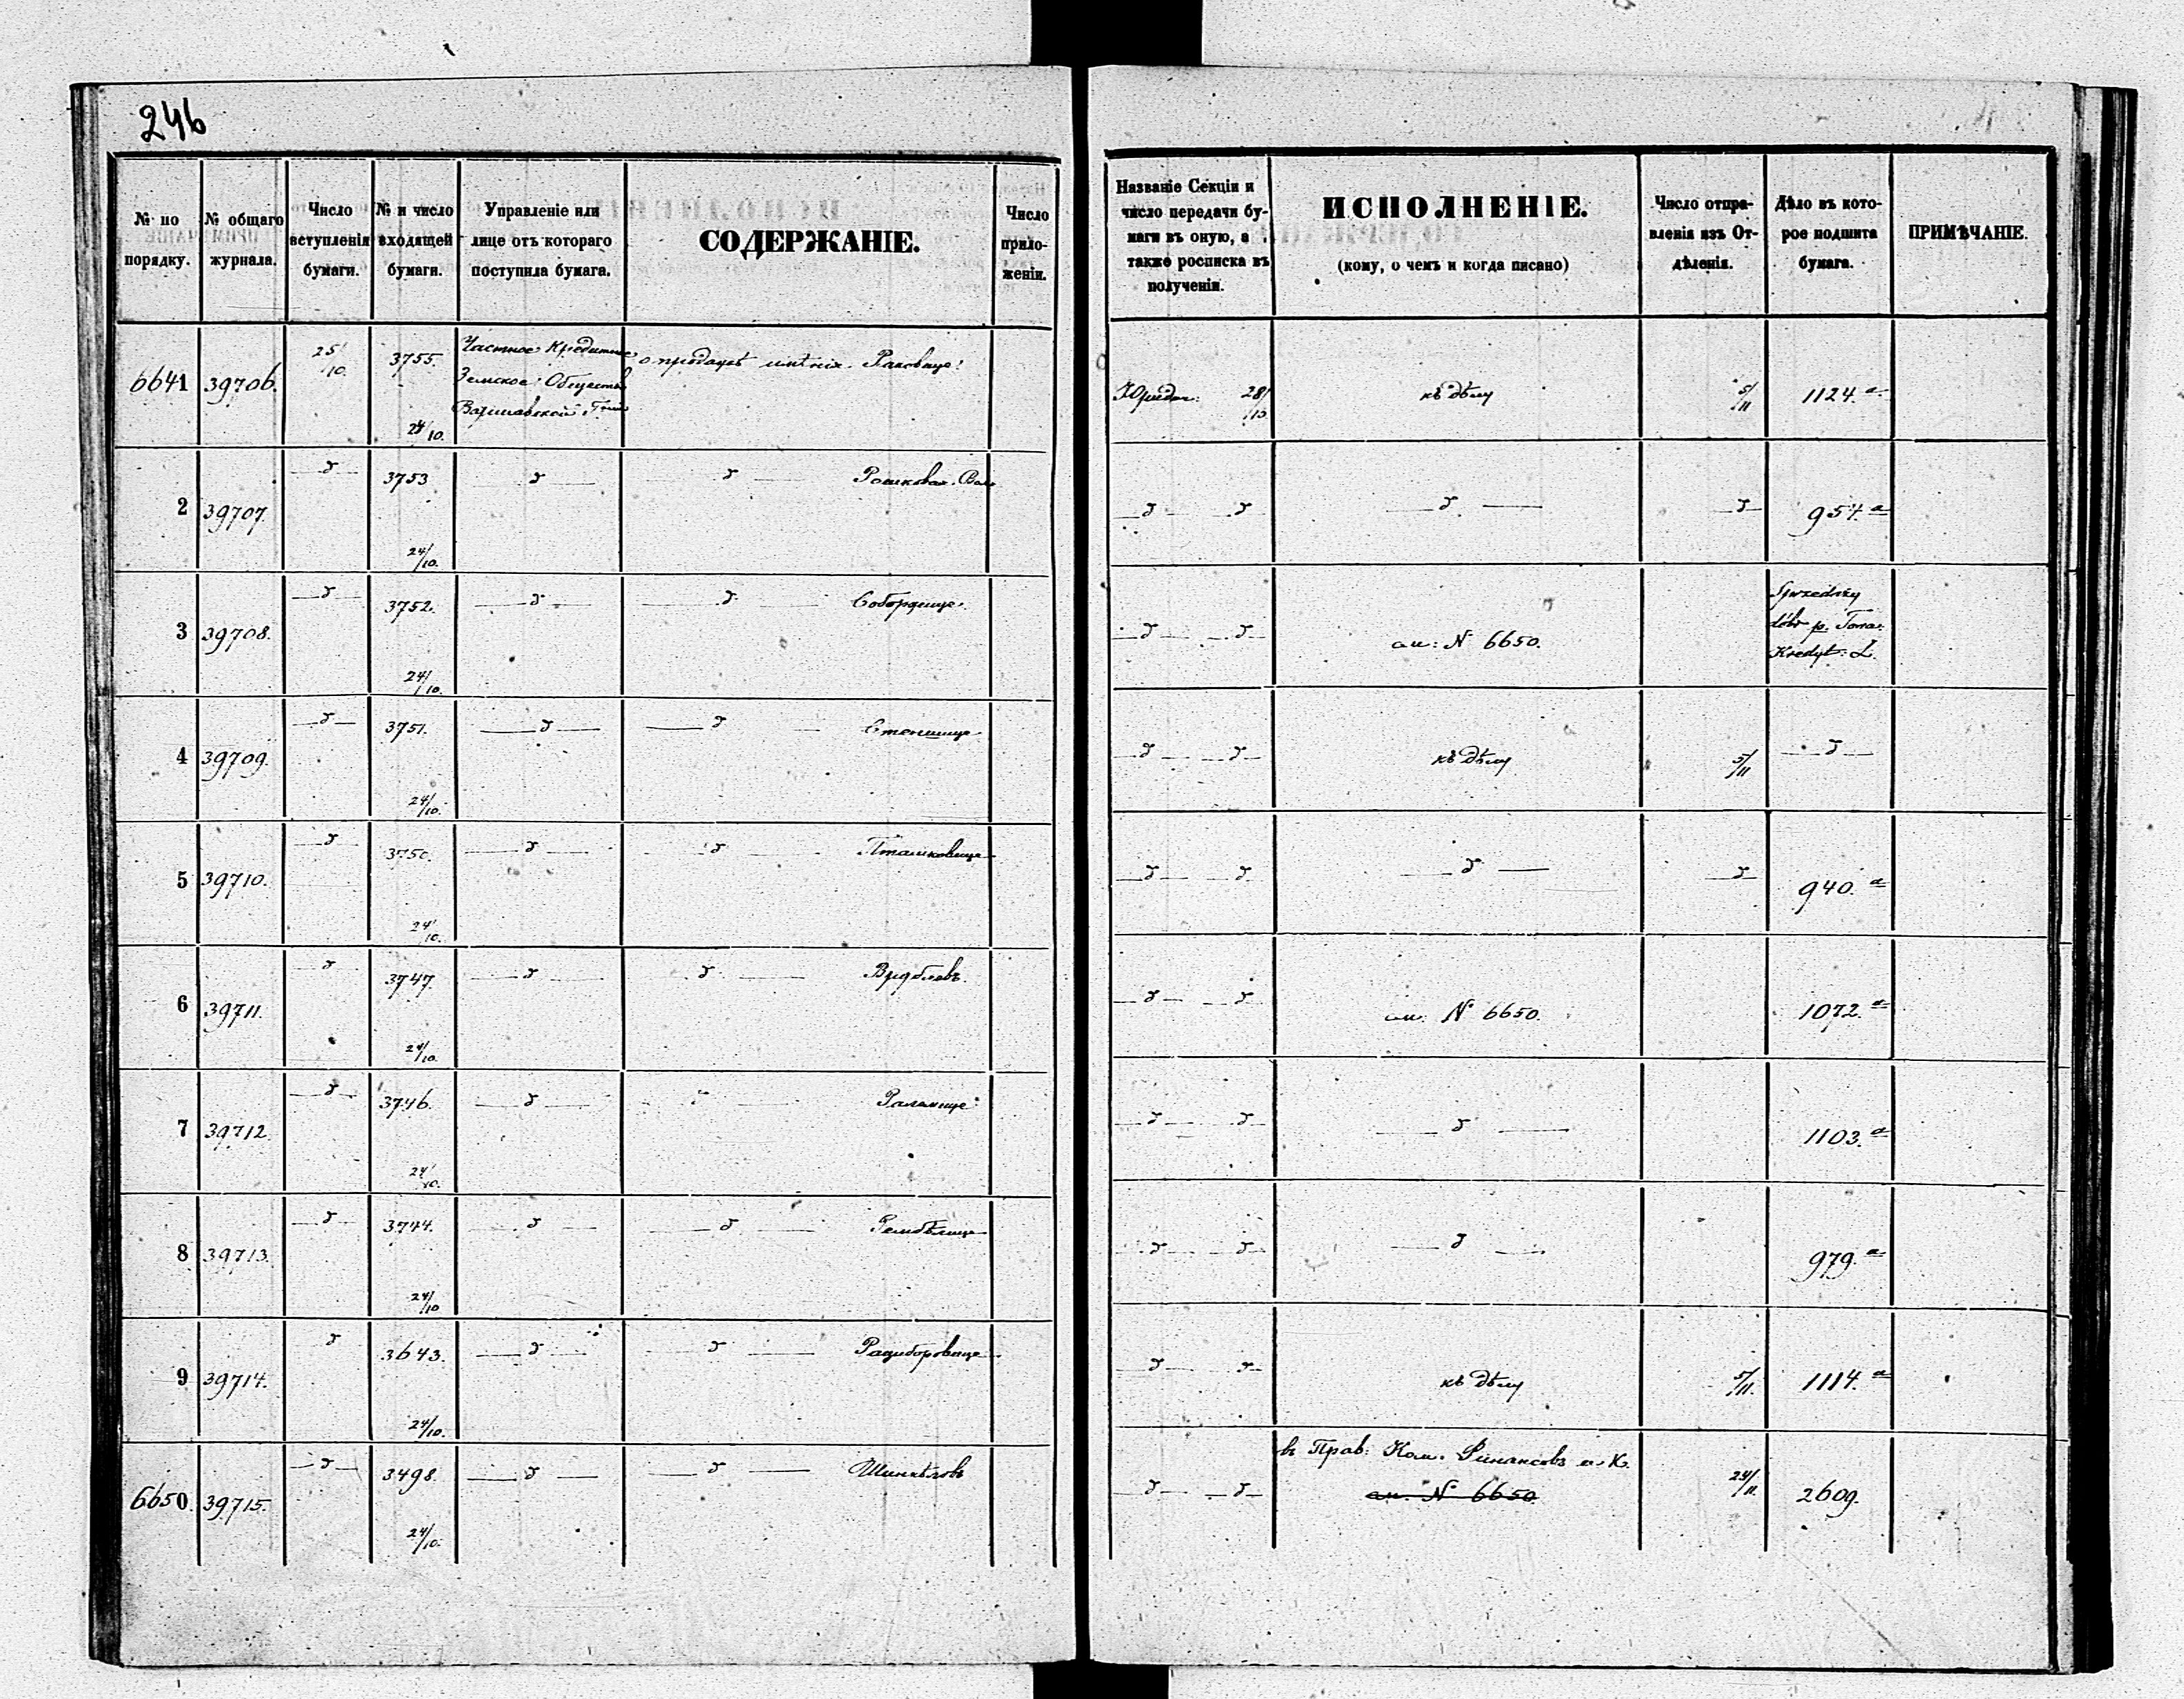 246
№ по порядку.
№ общаго журнала.
Число вступленія бумаги.
№ и число входящей бумаги.
Управленіе или лице отъ котораго поступила бумага.
СОДЕРЖАНІЕ.
Число приложеніи.
Названіе Секціи и число передачи бумаги въ оную, а также росписка въ полученіи.
ИСПОЛНЕНІЕ.
(кому, о чемъ и когда писано)
Число отправленія изъ Отдѣленія.
Дѣло въ которое подшита бумага.
ПРИМѢЧАНІЕ.
6641 39706. 25/10. 3755. 24/10. Частное Кредитное о продажѣ имѣнія Раковице
Земское Общество
Варшавской Губ
Юридич: 28/10 къ дѣлу 5/11 1124.а
2 39707. —д— 3753 24/10. —д— —д— Рошковая Воля —д— —д— —д— —д— 954.а
3 39708. —д— 3752. 24/10. —д— —д— —д— —д— см: № 6650. Sprzedaży
dóbr p. Towa:
Kredyt: L.
4 39709. —д— 3751. 24/10. —д— —д— —д— —д— къ дѣлу 5/11 —д—
5 39710. —д— 3750. 24/10. —д— —д— Пташковице —д— —д— —д— —д— 940.а
6 39711. —д— 3747. 24/10. —д— —д— Врублевъ. —д— —д— см: № 6650. 1072.а
7 39712. —д— 3746. 24/10. —д— —д— —д— —д— —д— 1103.а
8 39713. —д— 3744. 24/10 —д— —д— —д— —д— —д— 979.а
9 39714. д 3643. 24/10. —д— —д— Рациборовице —д— —д— къ дѣлу 5/11. 1114.а
6650. 39715. —д— 3498. 24/10. —д— —д— —д— —д— въ Прав: Ком. Финансовъ и К.
см. № 6650 24/11. 2609.